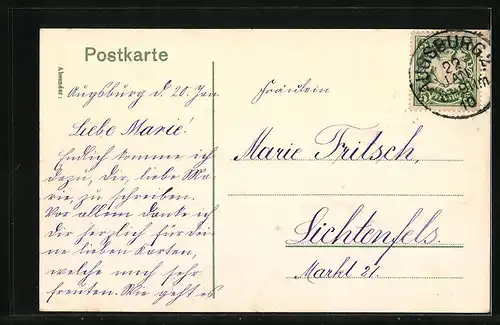 Postkarte
Absender:
Augsburg d. 20. Jan
Liebe Marie!
Endlich komme ich
dazu, Dir, liebe Ma-
rie, zu schreiben.
Vor allem danke ich
Dir herzlich für Dei-
ne lieben Karten,
welche mich sehr
freuten. Wie geht es
Fräulein
Marie Fritsch,
Lichtenfels.
Markt 21.
AUGSBURG 2